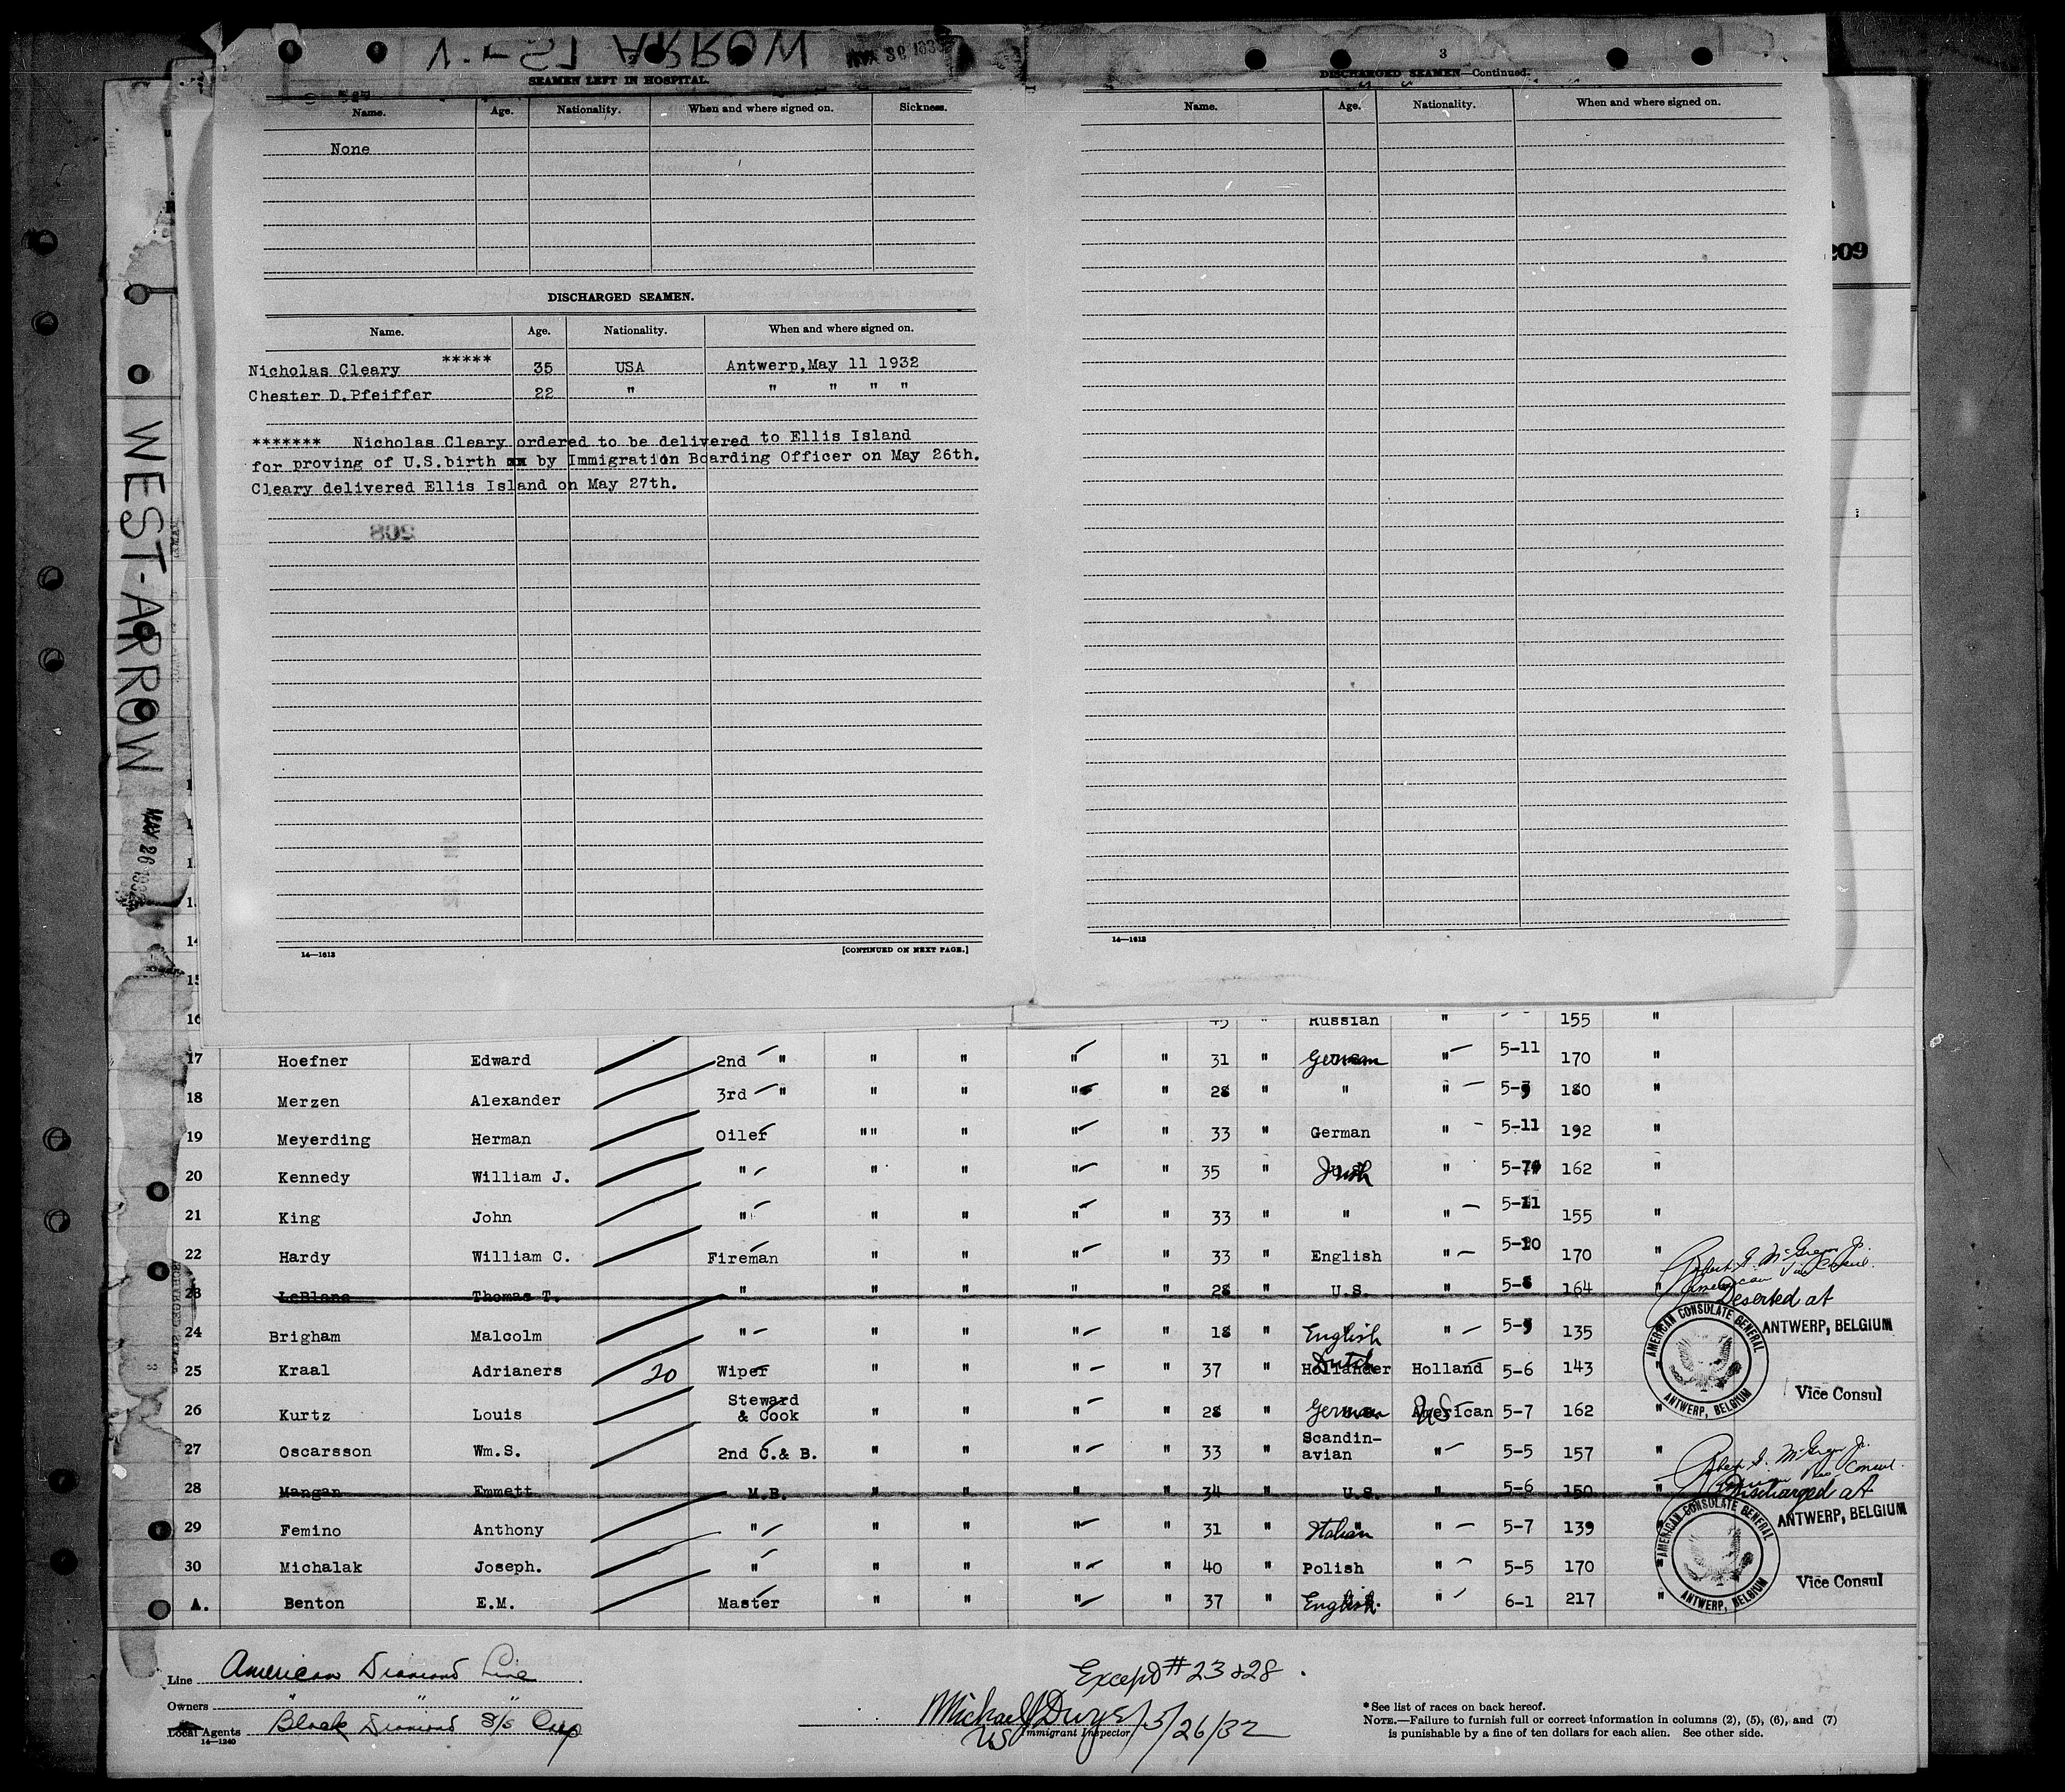 WEST-ARROW
MAY 26 1932
3
SEAMEN LEFT IN HOSPITAL.
Name. Age. Nationality. When and where signed on. Sickness.
None
DISCHARGED SEAMEN.
Name. Age. Nationality. When and where signed on.
Nicholas Cleary ***** 35 USA Antwerp,May 11 1932
Chester D.Pfeiffer 22 " " " " "
******* Nicholas Cleary ordered to be delivered to Ellis Island
for proving of U.S.birth by Immigration Boarding Officer on May 26th.
Cleary delivered Ellis Island on May 27th.
14—1613 [CONTINUED ON NEXT PAGE.]
DISCHARGED SEAMEN—Continued.
Name. Age. Nationality. When and where signed on.
14—1613
209
16 Russian " 155 "
17 Hoefner Edward 2nd " " " " " 31 " German " 5-11 170 "
18 Merzen Alexander 3rd " " " " " 28 " " " 180 "
19 Meyerding Herman Oiler "" " " " 33 " German " 5-11 192 "
20 Kennedy William J. " " " " " 35 " Irish " 162 "
21 King John " " " " " 33 " " " 5-11 155 "
22 Hardy William C. Fireman " " " " 33 " English " 5-10 170 "
23 LeBlanc Thomas T. " " " " " 28 " U.S. " 5-8 164 "
Robert S. McGregor Jr.
American Vice Consul.
Deserted at
ANTWERP, BELGIUM
24 Brigham Malcolm " " " " " 18 " English " 135
25 Kraal Adrianers 20 Wiper " " " " 37 " Hollander Dutch Holland 5-6 143
AMERICAN CONSULATE GENERAL ANTWERP, BELGIUM
Vice Consul
26 Kurtz Louis Steward & Cook " " " " 28 " German American US 5-7 162 "
27 Oscarsson Wm.S. 2nd C.& B. " " " " 33 " Scandin-avian " 5-5 157 "
28 Mangan Emmett M.B. " " " " 34 " U.S. " 5-6 150 "
Robert S. McGregor Jr.
American Vice Consul.
Discharged at
ANTWERP, BELGIUM
29 Femino Anthony " " " " " 31 " Italian " 5-7 139 "
30 Michalak Joseph. " " " " " 40 " Polish " 5-5 170 "
AMERICAN CONSULATE GENERAL ANTWERP, BELGIUM
Vice Consul
A. Benton E.M. Master " " " " 37 " English " 6-1 217 "
Line American Diamond Line
Owners " " "
Local Agents Black Diamond S/S Corp
14—1240
Except #23 & 28.
Michael J Dwyer 5/26/32
US Immigrant Inspector
* See list of races on back hereof.
NOTE.—Failure to furnish full or correct information in columns (2), (5), (6), and (7)
is punishable by a fine of ten dollars for each alien. See other side.